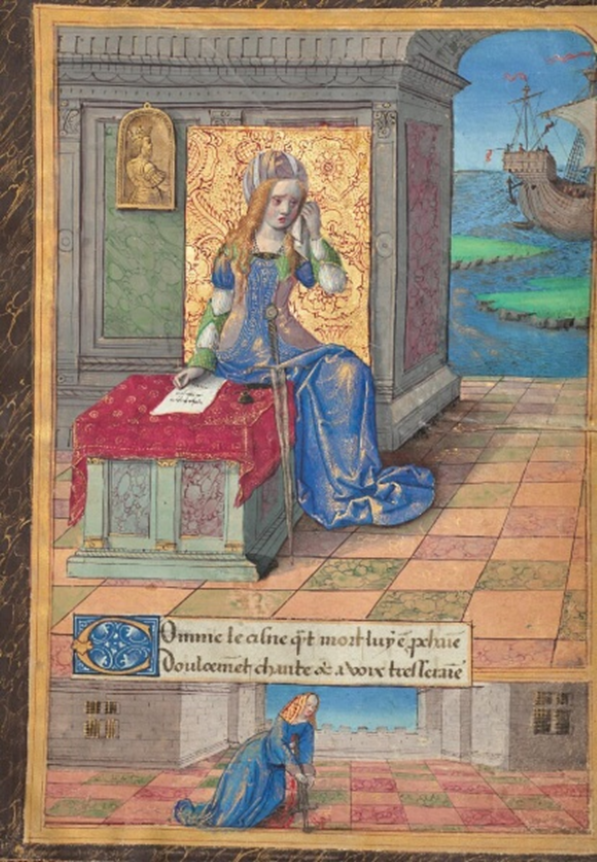 Comme le cisne q̃t mort luy ẽ p̱chaĩe
Doulcemẽt chante & a voix tresseraĩe